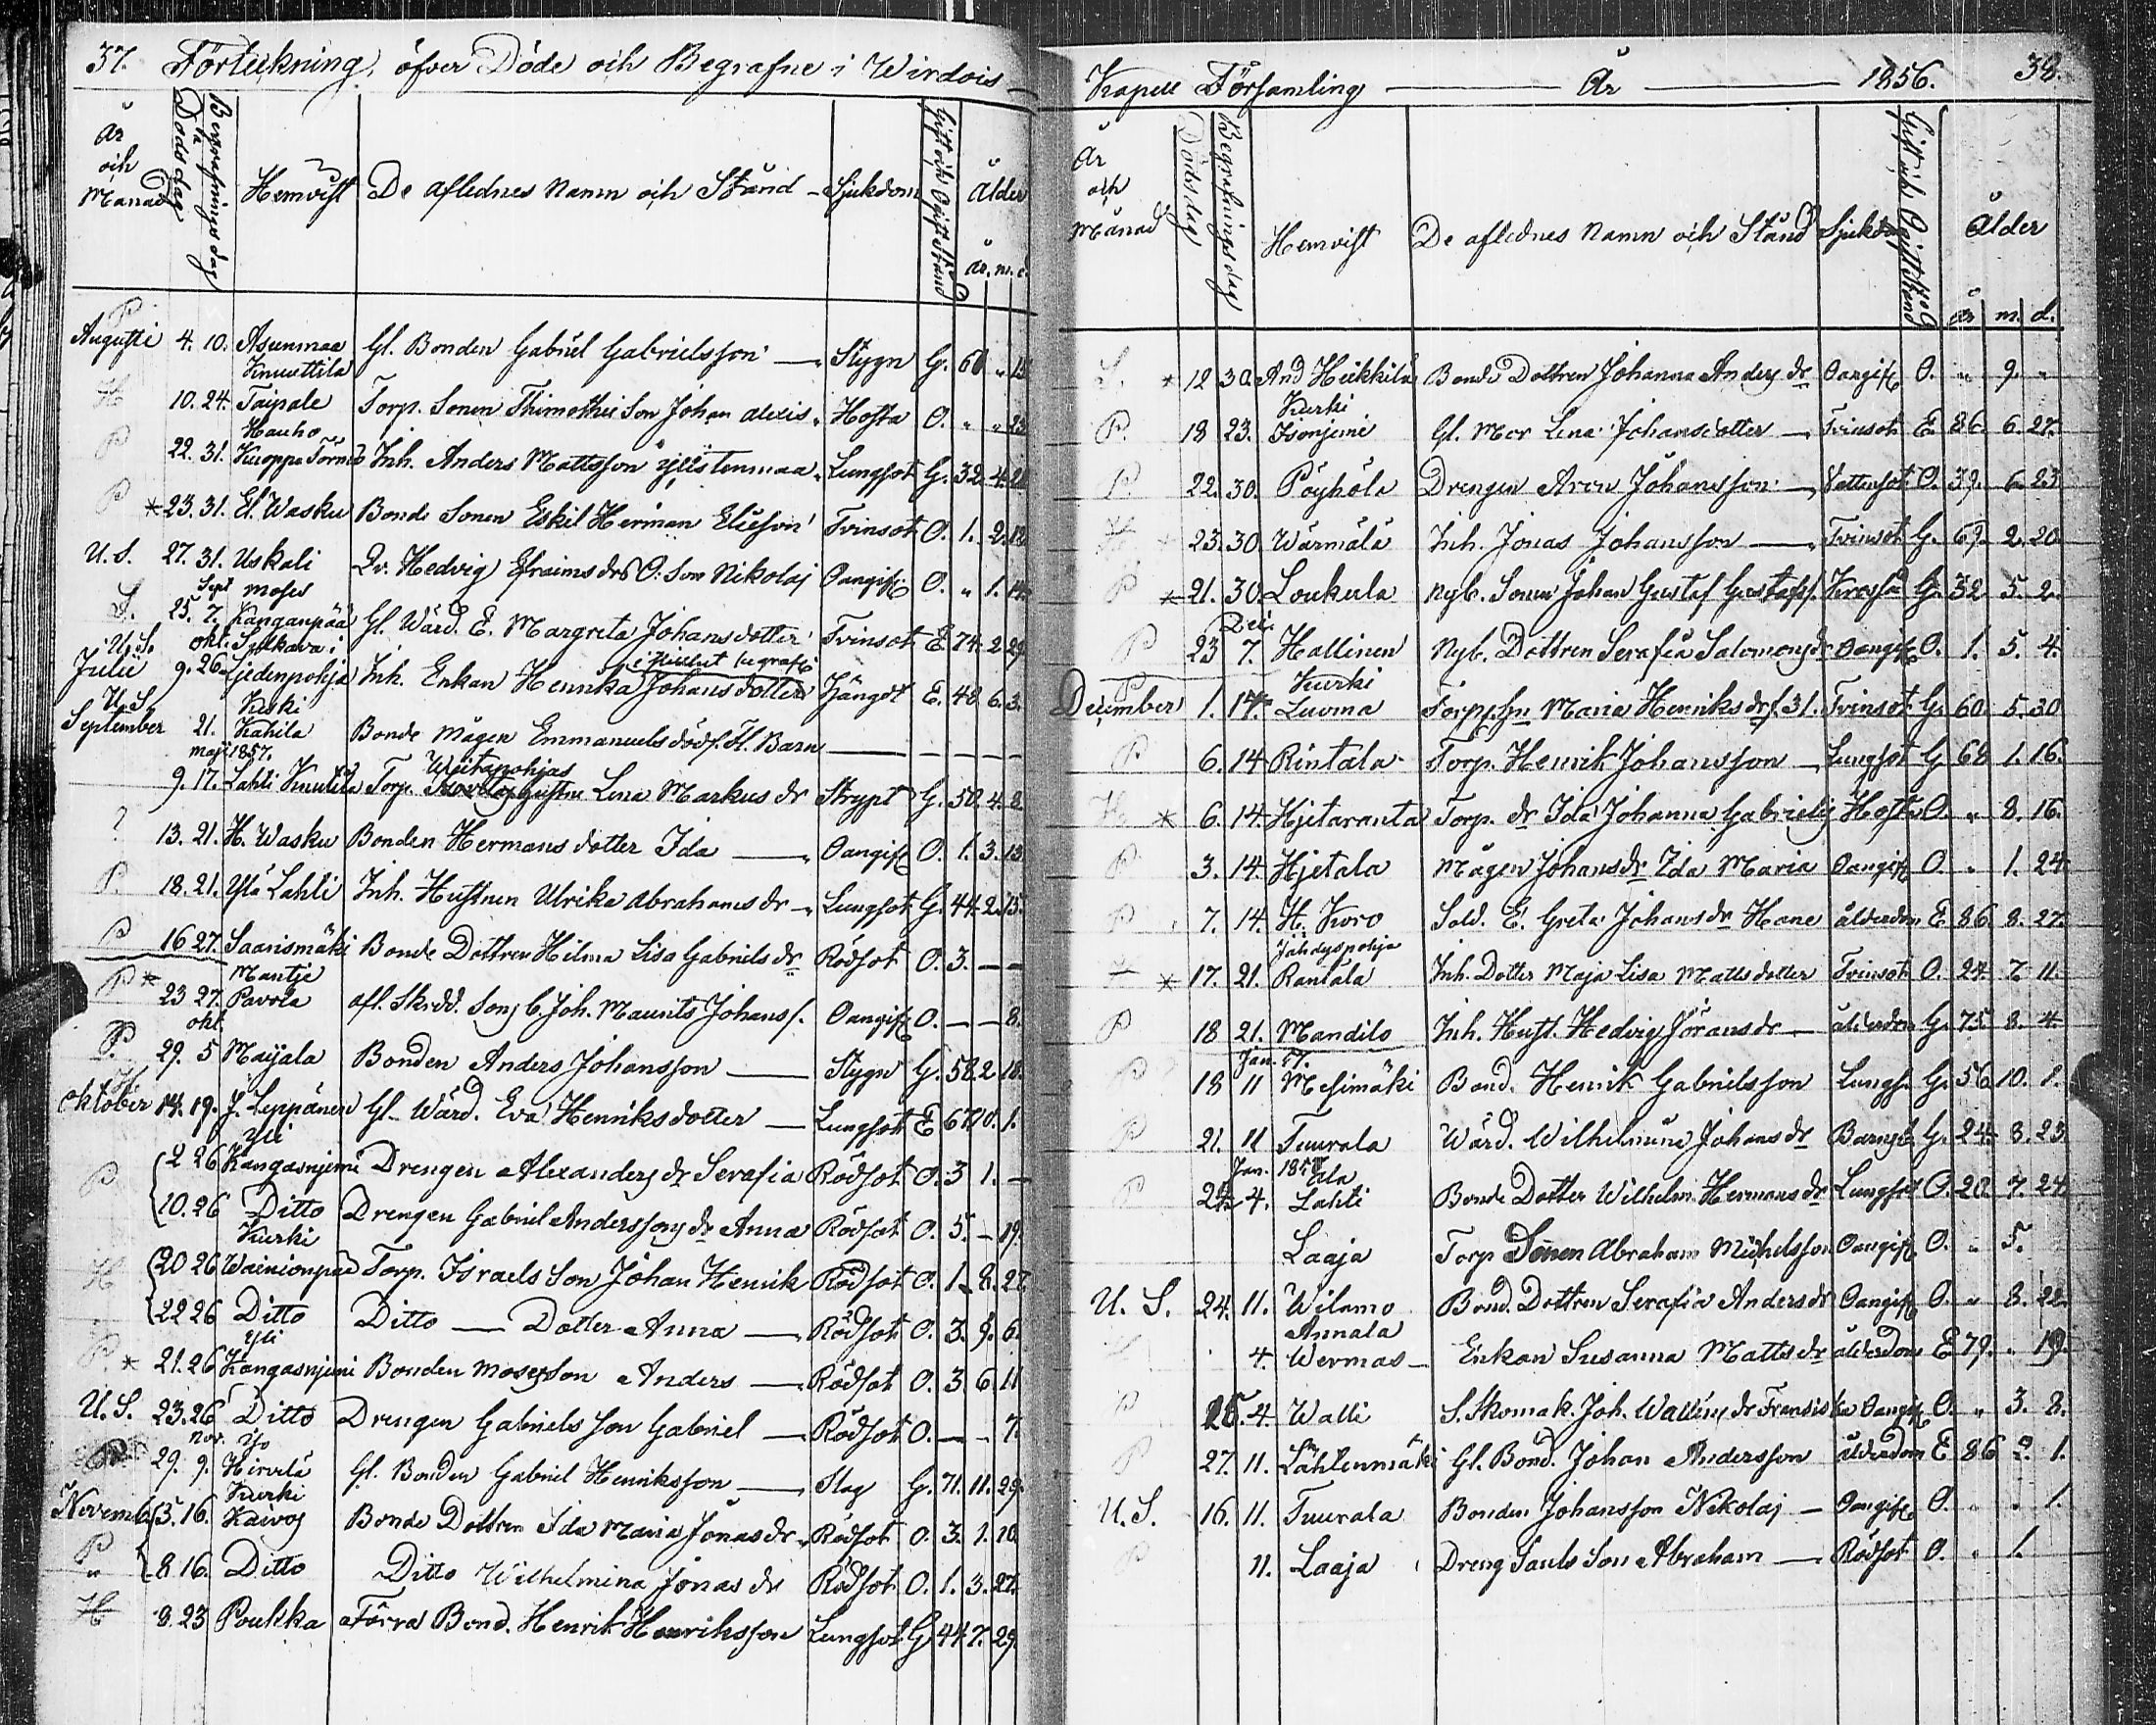 37. Förteckning öfver Döde och Begrafne i Wirdois
År och Månad Dödsdag Begrafnings dag Hemvist De aflednes Namn och Stånd Sjukdom Gift och Ogift Stånd Ålder
år. m. d.
P
Augusti 4. 10. Asunmaa Gl. Bonden Gabriel Gabrielsson — Stygn G.
Knuuttila
H 10. 24. Taipale Torp. Sonen Thimothei Son Johan Alexis Hosta O. " " 23
Hauho
P 22. 31. Inh. Anders Mattsson Ylistenmaa Lungsot G. 32. 4.
P * 23. 31. El. Wasku Bonde Sonen Eskil Herman Elieson Tvinsot O. 1. 2. 18
U. S. 27. 31. Uskali Qv. Hedvig Efraims drs O. Son Nikolaj Oangif. O. " 1. 14.
Sept Moses
S. 25. 7. Kangaspää Gl. Wärd. E. Margreta Johansdotter Tvinsot E. 74. 2. 29
U. S. okt.
Julii 9. 26. Inh. Enkan Henrika Johansdotter E. 48 6. 3.
U. S. Kurki
September 21. Kahila Bonde Mågen Emmanuels dödf. Fl. Barn — — —
maji 1857.
Weitapohjas
9. 17. Lahti Knutila Torp. Lena Markus dr Strypt G. 50. 4. 8.
? 13. 21. H. Wasku Bonden Hermans dotter Ida — Oangif. O. 1. 3. 13.
P. 18. 21. Ylä Lahti Inh. Hustrun Ulrika Abrahams dr Lungsot G. 44. 2. 15.
P 16 27. Saarismäki Bonde Dottren Hilma Lisa Gabriels dr Rödsot O. 3. — —
P * Mantje
23 27. Pavola afl. Skrdd. Sons b. Joh. Maunits Johans s. Oangif. O. — — 8.
okt.
P. 29. 5 Maijala Bonden Anders Johansson — Stygn G. 58. 2 18.
H
Oktober 14. 19. J. Leppänen Gl. Wärd. Eva Henriksdotter — Lungsot E 67. 10. 1.
Yli
P 2 26 Kangasnjemi Drengen Alexanders dr Serafia Rödsot O. 3 1. —
10. 26 Ditto Drengen Gabriel Anderssons dr Anna Rödsot O. 5. — 19.
Kurki
H 20 26 Wainionpää Torp. Israels Son Johan Henrik Rödsot O. 1. 8. 27
22 26 Ditto Ditto — Dotter Anna — Rödsot O. 3. 9. 6.
Yli
P. * 21. 26 Kangasnjemi Bonden Moses Son Anders — Rödsot O. 3. 6. 11
U. S. 23. 26 Ditto Drengen Gabriels Son Gabriel — Rödsot O. — — 7.
nov. Yo
29. 9. Hirvelä Gl. Bonden Gabriel Henriksson — Slag G. 71. 11. 29.
Kurki
Novemb. 5. 16. Kaivos Bonde Dottren Ida Maria Jonas dr Rödsot O. 3. 1. 10.
P
" 8 16. Ditto Ditto Wilhelmina Jonas dr Rödsot O. 1. 3. 27.
H 8. 23 Poukka Förra Bond. Henrik Henriksson Lungsot G 44. 7. 29.
Kapell Församling — År — 1856. 38.
År och Månad Dödsdag Begrafnings dag Hemvist De aflednes Namn och Stånd Sjukdom Gift och Ogift Stånd Ålder
år m. d.
S. * 12 30. And Heikkilä Bonde Dottren Johanna Anders dr Oangif. O. " 9. "
Kurki
P. 18 23. Isonjemi Gl. Mor Lena Johansdotter — Tvinsot E. 86. 6. 27.
P. 22. 30. Pöyhölä Drengen Aron Johansson — Vattensot O. 39. 6. 23
H * 23. 30. Wärmälä Inh. Jonas Johansson — Tvinsot G. 69. 2. 20.
P * 21. 30. Loukula Nyb. Sonen Johan Gustaf Gustafss. G. 32 5. 2.
Dec.
P 23 7. Hallinen Nyb. Dottren Serafia Salomons dr Oangif. O. 1. 5. 4.
P Kurki
December 1. 14. Luoma Maria Henriks dr f. 31. Tvinsot G. 60. 5. 30
P 6. 14 Rintala Torp. Henrik Johansson — Lungsot G 68 1. 16.
H * 6. 14. Hjetaranta Torp. dr Ida Johanna Gabriels Hosta O. " 8. 16.
P 3. 14. Hjetala Mågen Johans dr Ida Maria Oangif. O. " 1. 24
P 7. 14. H. Koro Sold. E. Greta Johans dr Hane ålderdom E. 86. 8. 27.
Jähdyspohja
* 17. 21. Rantala Inh. Dotter Maja Lisa Mattsdotter Tvinsot O. 24. 7. 11.
P 18 21. Mandilo Inh. Hust. Hedvig Jörans dr — ålderdom G. 75. 8. 4.
Jan. 57.
P 18 11 Mesimäki Bond. Henrik Gabrielsson Lungs. G. 56 10. 1.
P 21. 11 Tuurala Wärd. Wilhelmina Johans dr Barnsb. G. 24. 8. 23
Jan. 1857 Ala
P 24. 4. Lahti Bonde Dotter Wilhelm. Hermans dr Lungsot O. 20. 7. 24
Laaja Torp Sonen Abraham Michelsson Oangif. O. " 5.
U. S. 24. 11. Wilamo Bond. Dottren Serafia Anders dr Oangif. O. " 8. 22.
Annala
4. Wermas Enkan Susanna Matts dr ålderdom E 79. " 19.
P 4. Walli S. Skomak. Joh. Wallins dr Fransiska Oangif. O. " 3. 8.
P 27. 11. Lähteenmäki Gl. Bond. Johan Andersson ålderdom E 86 1.
U. S. 16. 11. Tuurala Bonden Johansson Nikolaj — Oangif. O. " " 1.
P 11. Laaja Dreng Pauls Son Abraham — Rödsot O. " 1.